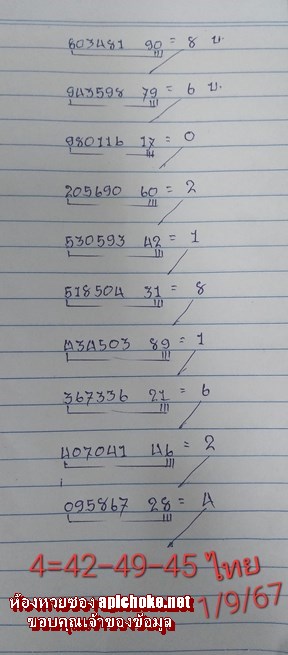 803481 90 = 8 บ.
943598 79 = 6 บ.
980116 17 = 0
205690 60 = 2
530593 42 = 1
518504 31 = 8
434503 89 = 1
367336 21 = 6
407041 46 = 2
095867 28 = 4
4=42-49-45 ไทย
ห้องหวยซอง aplchoke.net 1/9/67
ขอบคุณเจ้าของข้อมูล